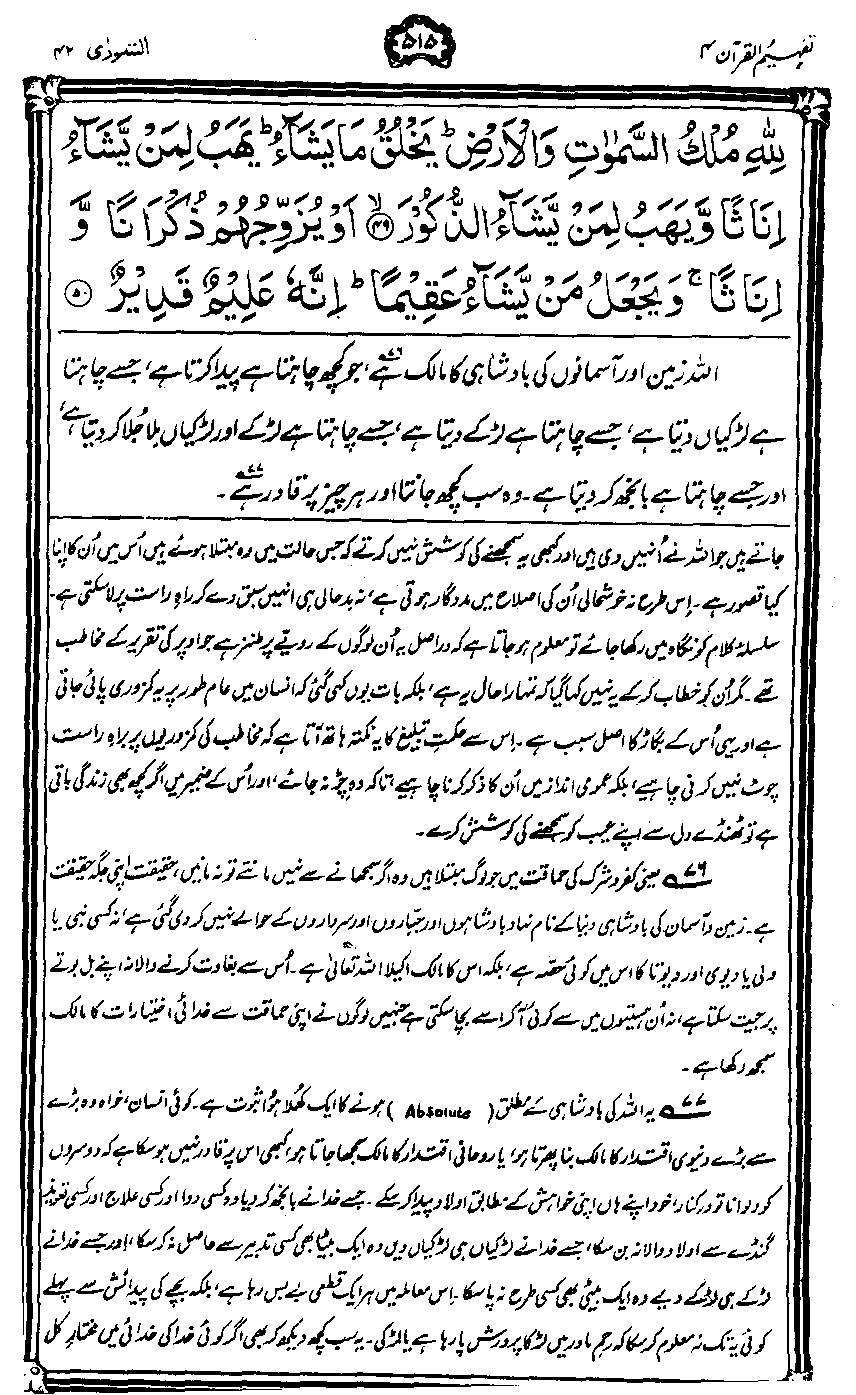 تفہیم القرآن ۴
۵۱۵
الشورٰی ۴۲
لِلّٰهِ مُلْكُ السَّمٰوٰتِ وَالْاَرْضِ ؕ يَخْلُقُ مَا يَشَآءُ ؕ يَهَبُ لِمَنْ يَّشَآءُ
اِنَاثًا وَّيَهَبُ لِمَنْ يَّشَآءُ الذُّكُوْرَ ۙ﴿۴۹﴾ اَوْ يُزَوِّجُهُمْ ذُكْرَانًا وَّ
اِنَاثًا ۚ وَيَجْعَلُ مَنْ يَّشَآءُ عَقِيْمًا ؕ اِنَّهٗ عَلِيْمٌ قَدِيْرٌ ﴿۵۰﴾
اللہ زمین اور آسمانوں کی بادشاہی کا مالک ہے۷۶، جو کچھ چاہتا ہے پیدا کرتا ہے، جسے چاہتا
ہے لڑکیاں دیتا ہے، جسے چاہتا ہے لڑکے دیتا ہے، جسے چاہتا ہے لڑکے اور لڑکیاں ملا جُلا کر دیتا ہے،
اور جسے چاہتا ہے بانجھ کر دیتا ہے۔ وہ سب کچھ جانتا اور ہر چیز پر قادر ہے۷۷۔
جاتے ہیں جو اللہ نے اُنہیں دی ہیں اور کبھی یہ سمجھنے کی کوشش نہیں کرتے کہ جس حالت میں وہ مبتلا ہوئے ہیں اُس میں اُن کا اپنا
کیا قصور ہے۔ اِس طرح نہ خوشحالی اُن کی اصلاح میں مددگار ہوتی ہے، نہ بدحالی ہی انہیں سبق دے کر راہِ راست پر لا سکتی ہے۔
سلسلۂ کلام کو نگاہ میں رکھا جائے تو معلوم ہو جاتا ہے کہ دراصل یہ اُن لوگوں کے رویّے پر طنز ہے جو اوپر کی تقریر کے مخاطب
تھے۔ مگر اُن کو خطاب کر کے یہ نہیں کہا گیا کہ تمہارا حال یہ ہے، بلکہ بات یوں کہی گئی کہ انسان میں عام طور پر یہ کمزوری پائی جاتی
ہے اور یہی اُس کے بگاڑ کا اصل سبب ہے۔ اِس سے حکمتِ تبلیغ کا یہ نکتہ ہاتھ آتا ہے کہ مخاطب کی کمزوریوں پر براہِ راست
چوٹ نہیں کرنی چاہیے، بلکہ عمومی انداز میں اُن کا ذکر کرنا چاہیے، تاکہ وہ چڑ نہ جائے، اور اُس کے ضمیر میں اگر کچھ بھی زندگی باقی
ہے تو ٹھنڈے دل سے اپنے عیب کو سمجھنے کی کوشش کرے۔
۷۶ یعنی کفر و شرک کی حماقت میں جو لوگ مبتلا ہیں وہ اگر سمجھانے سے نہیں مانتے تو نہ مانیں، حقیقت اپنی جگہ حقیقت
ہے۔ زمین و آسمان کی بادشاہی دنیا کے نام نہاد بادشاہوں اور جبّاروں اور سرداروں کے حوالے نہیں کر دی گئی ہے، نہ کسی نبی یا
ولی یا دیوی اور دیوتا کا اس میں کوئی حصّہ ہے، بلکہ اس کا مالک اکیلا اللہ تعالیٰ ہے۔ اُس سے بغاوت کرنے والا نہ اپنے بل بوتے
پر جیت سکتا ہے، نہ اُن ہستیوں میں سے کوئی آ کر اسے بچا سکتی ہے جنہیں لوگوں نے اپنی حماقت سے خدائی اختیارات کا مالک
سمجھ رکھا ہے۔
۷۷ یہ اللہ کی بادشاہی کے مطلق (Absolute) ہونے کا ایک کھُلا ہوُا ثبوت ہے۔ کوئی انسان، خواہ وہ بڑے
سے بڑے دنیوی اقتدار کا مالک بنا پھرتا ہو، یا روحانی اقتدار کا مالک سمجھا جاتا ہو، کبھی اس پر قادر نہیں ہو سکا ہے کہ دوسروں
کو دلوانا تو درکنار، خود اپنے ہاں اپنی خواہش کے مطابق اولاد پیدا کر سکے۔ جسے خدا نے بانجھ کر دیا وہ کسی دوا اور کسی علاج اور کسی تعویذ
گنڈے سے اولاد والا نہ بن سکا، جسے خدا نے لڑکیاں ہی لڑکیاں دیں وہ ایک بیٹا بھی کسی تدبیر سے حاصل نہ کر سکا، اور جسے خدا نے
لڑکے ہی لڑکے دیے وہ ایک بیٹی بھی کسی طرح نہ پا سکا۔ اِس معاملہ میں ہر ایک قطعی بے بس رہا ہے، بلکہ بچے کی پیدائش سے پہلے
کوئی یہ تک نہ معلوم کر سکا کہ رحمِ مادر میں لڑکا پرورش پا رہا ہے یا لڑکی۔ یہ سب کچھ دیکھ کر بھی اگر کوئی خدا کی خدائی میں مختارِ کل